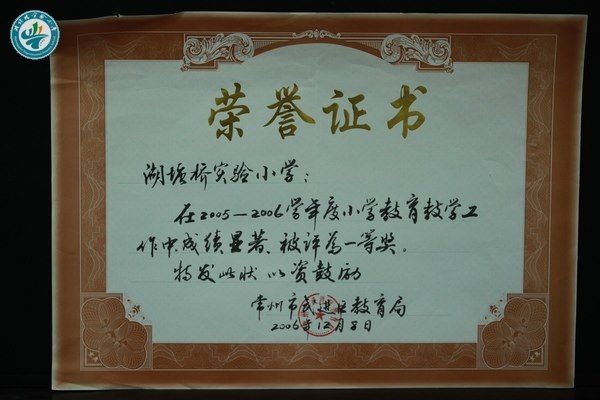 荣誉证书
湖塘桥实验小学：
在2005—2006学年度小学教育教学工
作中成绩显著，被评为一等奖。
特发此状 以资鼓励
常州市武进区教育局
2006年12月8日